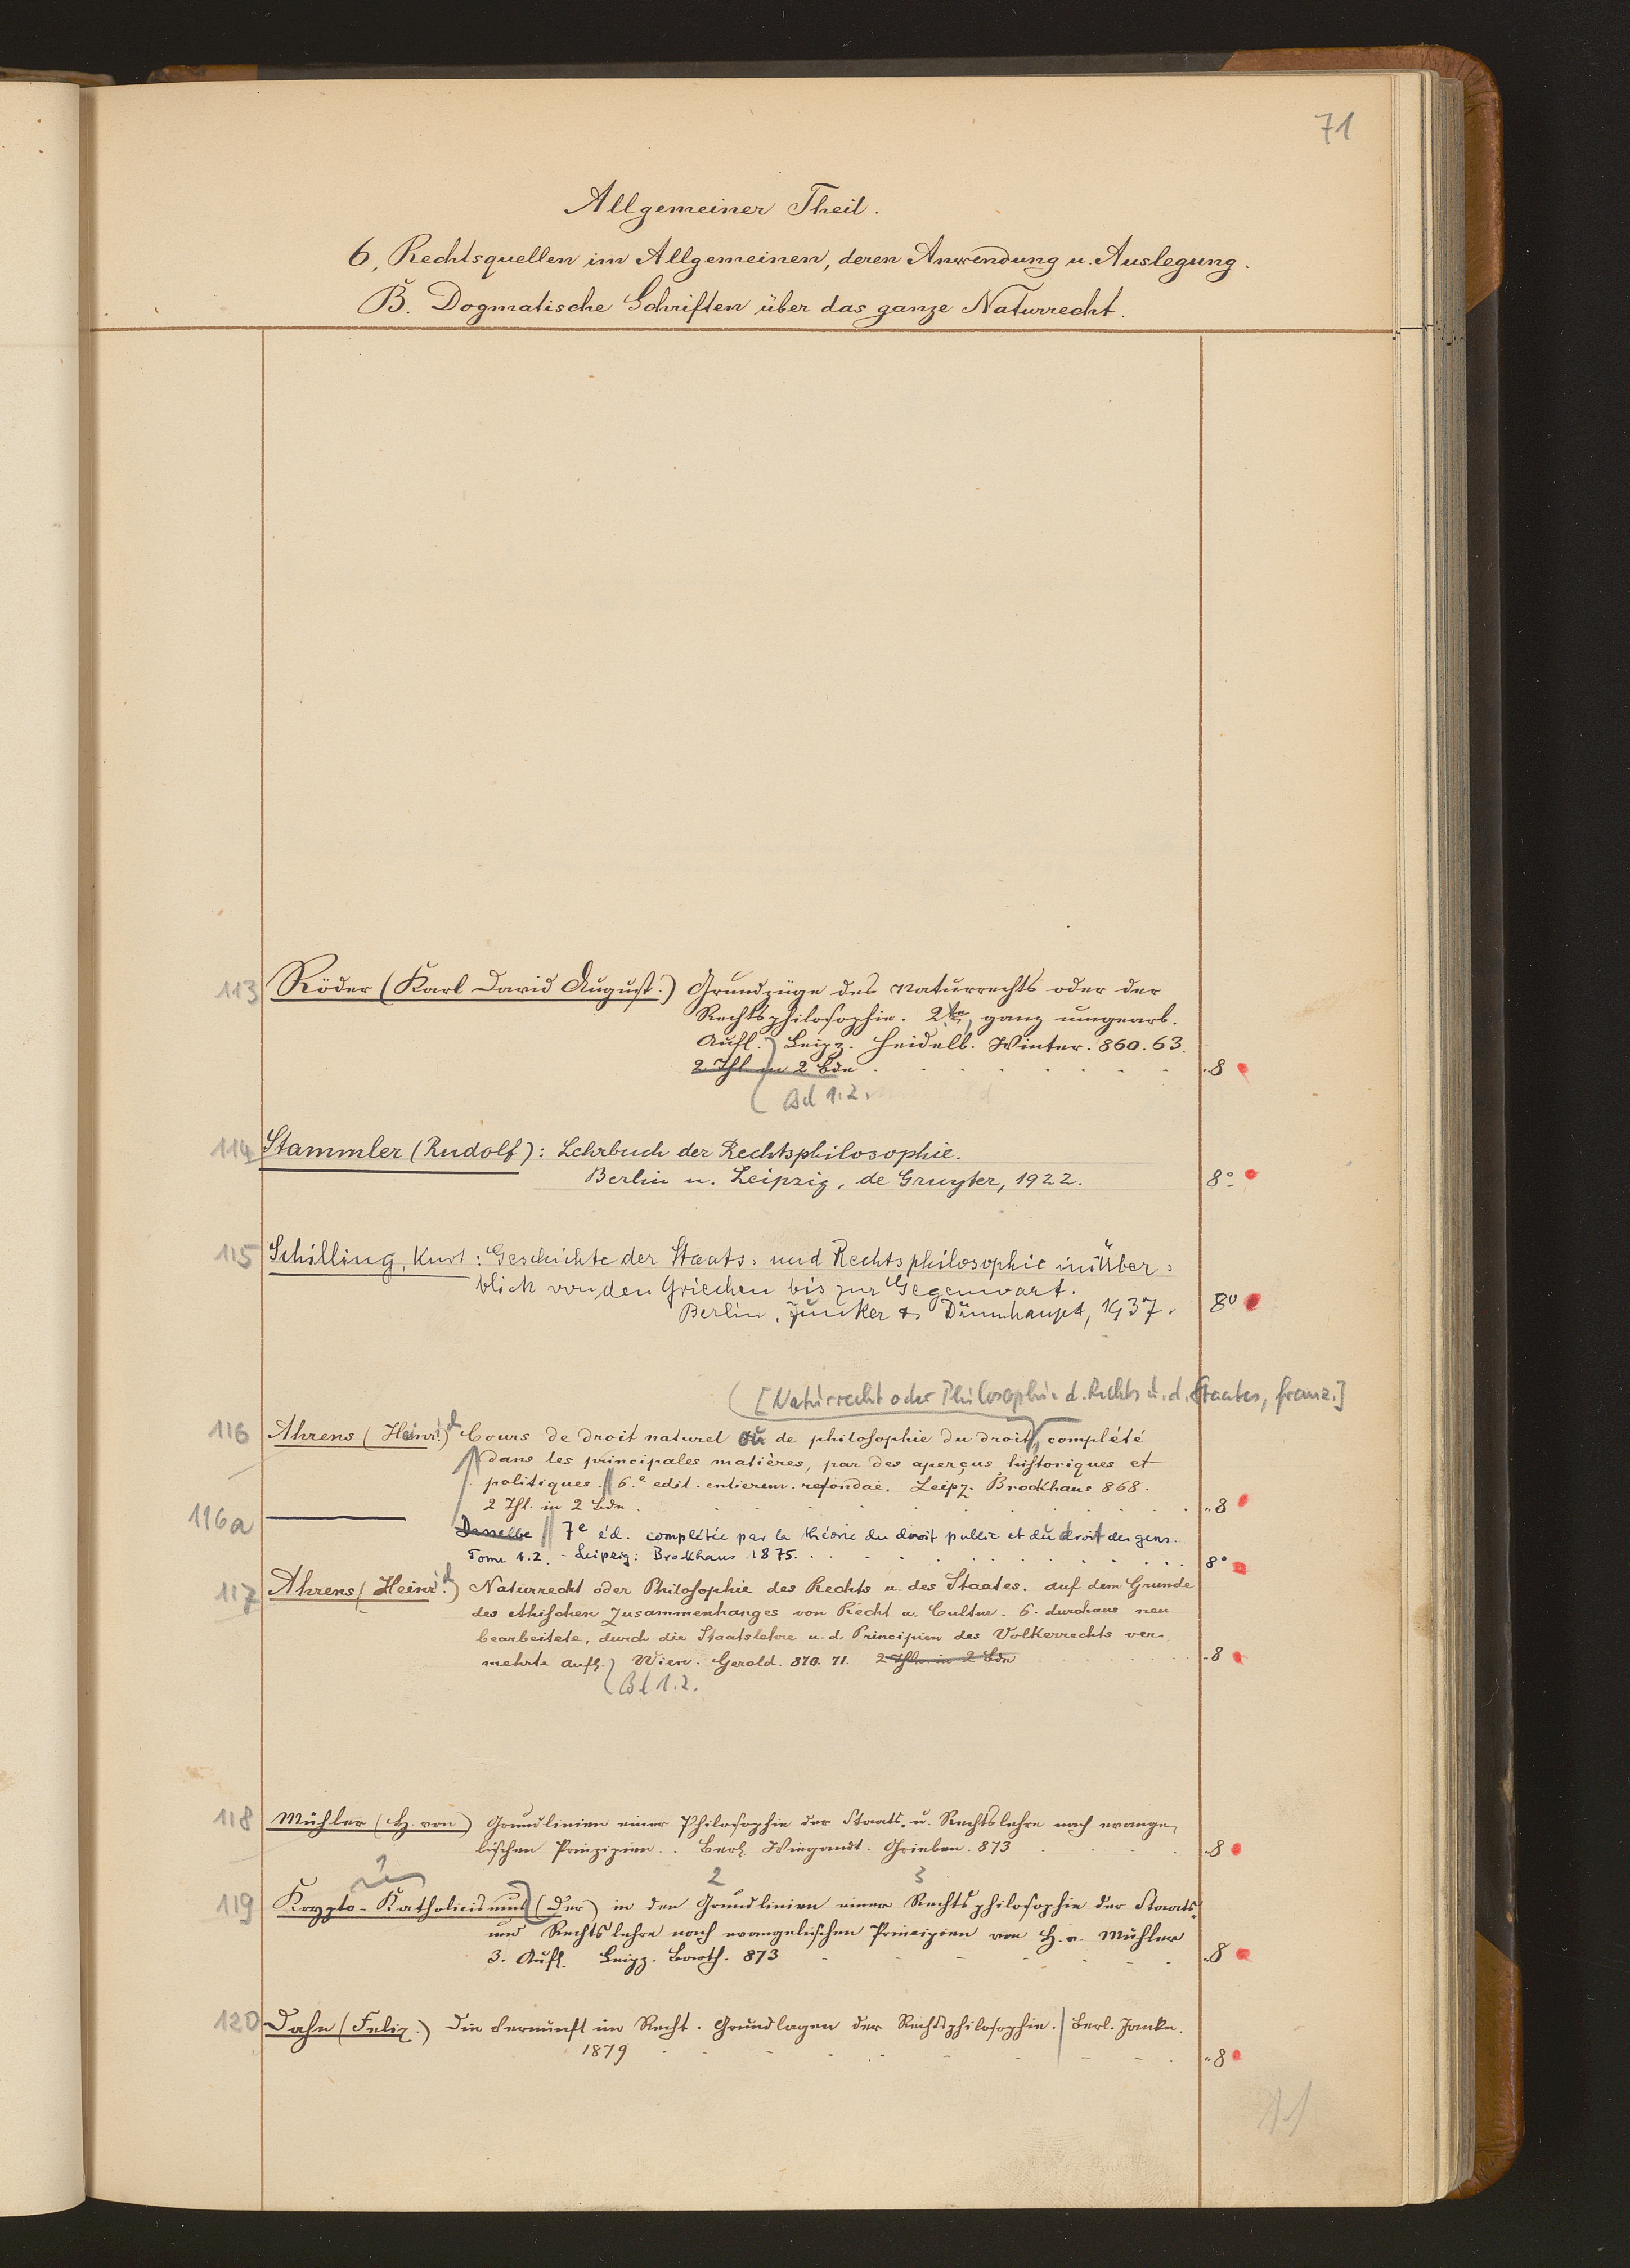 71
Allgemeiner Theil.
6, Rechtsquellen im Allgemeinen, deren Anwendung u. Auslegung.
B. Dogmatische Schriften über das ganze Naturrecht.
113 Röder (Karl David August.) Grundzüge des Naturrechts oder der
Rechtsphilosophie. 2te, ganz umgearb.
Aufl. Leipz. Heidelb. Winter. 860. 63.
2 Thl in 2 Bdn . . . . . . 8
Bd 1.2.
114 Stammler (Rudolf): Lehrbuch der Rechtsphilosophie.
Berlin u. Leipzig, de Gruyter, 1922. 8°
115 Schilling, Kurt: Geschichte der Staats- und Rechtsphilosophie im Über-
blick von den Griechen bis zur Gegenwart.
Berlin, Junker & Dünnhaupt, 1937. 8°
[Naturrecht oder Philosophie d. Rechts u. d. Staates, franz.]
116 Ahrens (Heinr.) Cours de droit naturel ou de philosophie du droit, complété
dans les principales matières, par des aperçus historiques et
politiques. 6.e edit. entierem. refondae. Leipz. Brockhaus 868.
2 Thl. in 2 Bdn . . . . . . 8
116a Dasselbe 7e éd. complétée par la théorie du droit public et du droit des gens.
Tome 1.2. - Leipzig: Brockhaus 1875. . . . . . . 8°
117 Ahrens (Heinr.) Naturrecht oder Philosophie des Rechts u. des Staates. auf dem Grunde
des ethischen Zusammenhanges von Recht u. Cultur. 6. durchaus neu
bearbeitete, durch die Staatslehre u. d. Principien des Völkerrechts ver-
mehrte Aufl. Wien. Gerold. 870. 71. 2 Thle in 2 Bdn . . . . . . 8
Bd 1.2.
118 Mühler (H. von) Grundlinien einer Philosophie der Staats- u. Rechtslehre nach evange-
lischen Prinzipien. . Berl. Wiegandt. Grieben. 873 . . . . 8
1 2 3
119 Krypto-Katholicismus (Der) in den Grundlinien einer Rechtsphilosophie der Staats-
und Rechtslehre nach evangelischen Principien von H. v. Mühler
3. Aufl. Leipz. Barth. 873 . . . . . . 8
120 Dahn (Felix.) Die Vernunft im Recht. Grundlagen der Rechtsphilosophie. Berl. Janke.
1879 . . . . . . 8